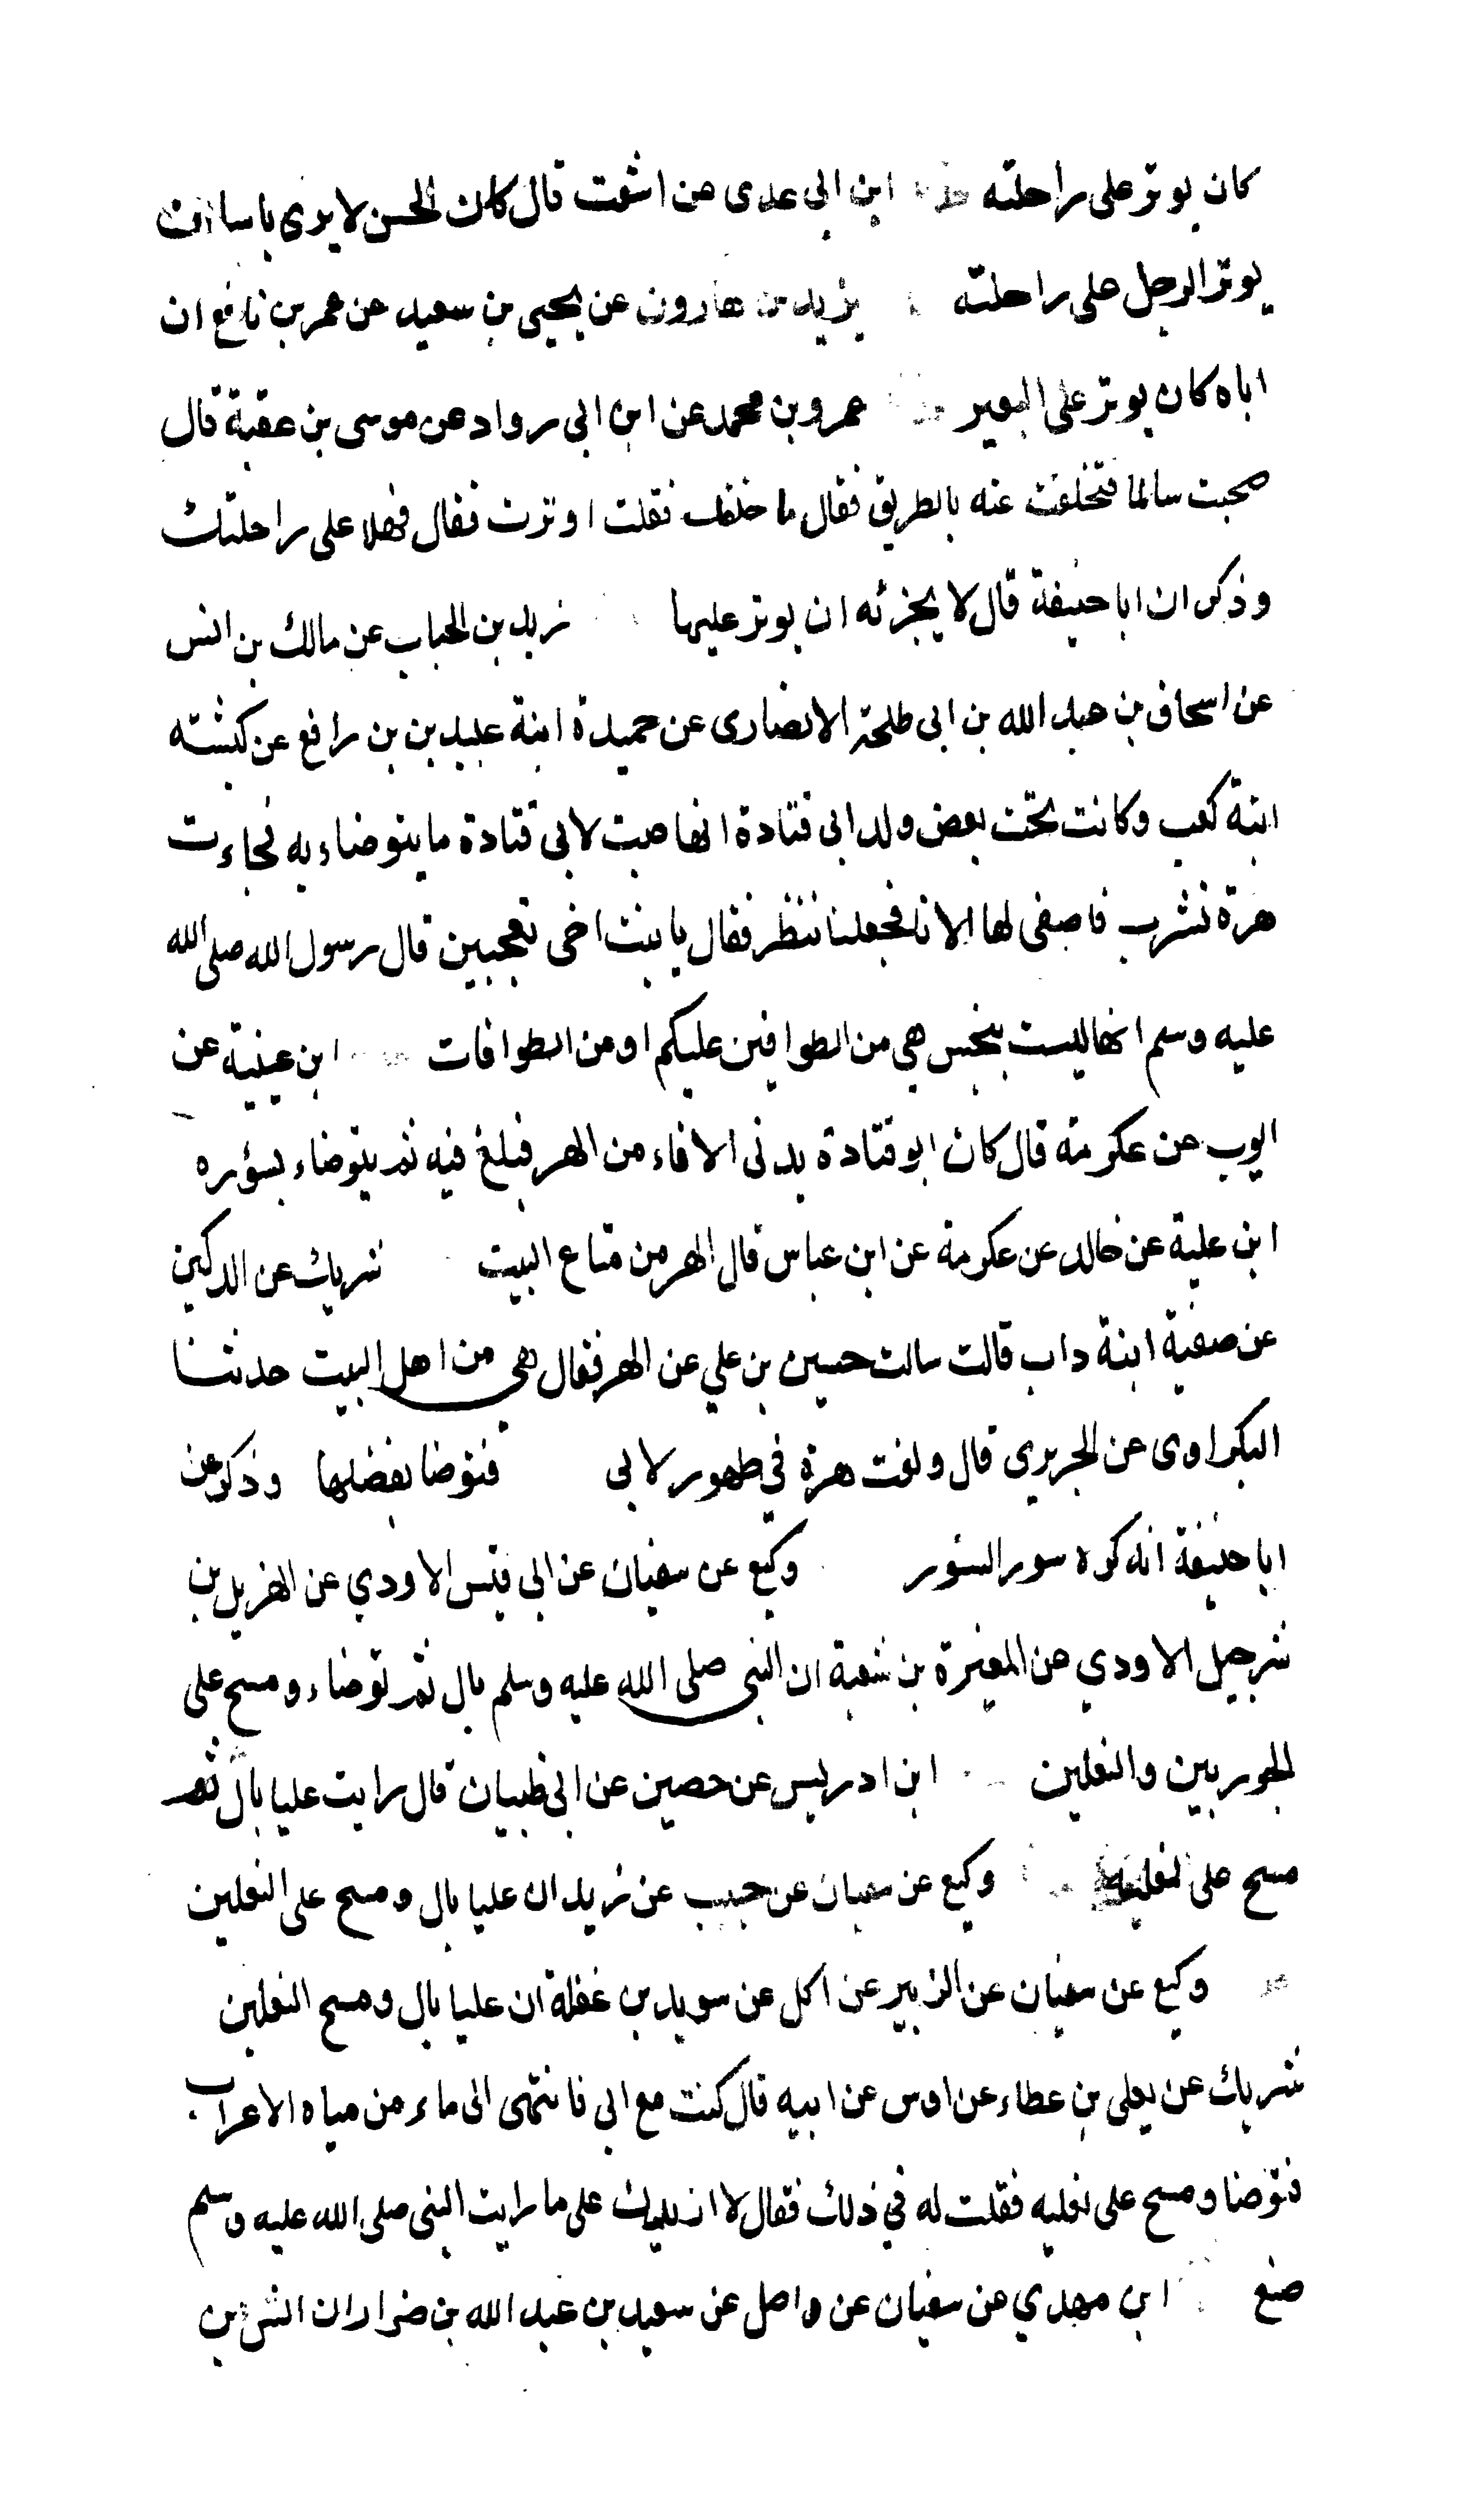 كان يوتر على راحلته ابن ابى عدى عن اشعث قال كان الحسن لا يرى باسا ان
يوتر الرجل على راحلته يزيد بن هارون عن يحيى بن سعيد عن عمر بن نافع ان
اباه كان يوتر على البعير عمرو بن محمد عن ابن ابى رواد عن موسى بن عقبة قال
صحبت سالما فتخلفت عنه بالطريق فقال ما خلفك فقلت اوترت فقال فهلا على راحلتك
وذكر ان ابا حنيفة قال لا يجزئه ان يوتر عليها زيد بن الحباب عن مالك بن انس
عن اسحاق بن عبد الله بن ابى طلحة الانصارى عن حميدة ابنة عبيد بن بن رافع عن كبشته
ابنة كعب وكانت تحت بعض ولد ابى قتادة انها صبت لابى قتادة ما يتوضاء به فجاءت
هرة تشرب فاصغى لها الانا فجعلنا ننظر فقال يا بنت اخى تعجبين قال رسول الله صلى الله
عليه وسم انها ليست بنجس هي من الطوافين عليكم او من الطوافات ابن عيينة عن
ايوب عن عكرمة قال كان ابو قتادة يدنى الاناء من الهر فيلغ فيه ثم يتوضاء بسؤره
ابن علية عن خالد عن عكرمة عن ابن عباس قال الهر من متاع البيت شريك عن الدكين
عن صفية ابنة داب قالت سالت حسين بن علي عن الهر فقال هى من اهل البيت حدثنا
البكراوى عن الجريرى قال ولغت هرة في طهور لابى فتوضا بفضلها وذكر عن
ابا حنيفة انه كره سور السنور وكيع عن سفيان عن ابى قيس الاودي عن الهزيل بن
شرحبيل الاودي عن المغيرة بن شعبة ان النبى صلى الله عليه وسلم بال ثم توضاء ومسح على
الجوربين والنعلين ابن ادريس عن حصين عن ابى ظبيان قال رايت عليا بال ثم
مسح على نعليه وكيع عن سفيان عن حبيب عن زيد ان عليا بال ومسح على النعلين
وكيع عن سفيان عن الزبير عن اكل عن سويد بن غفلة ان عليا بال ومسح النعلين
شريك عن يعلى بن عطاء عن اوس عن ابيه قال كنت مع ابى فانتهى الى ماء من مياه الاعراب
فتوضا ومسح على نعليه فقلت له في ذلك فقال لا ازيدك على ما رايت النبى صلى الله عليه وسم
صنع ابن مهدي عن سفيان عن واصل عن سعيد بن عبد الله بن ضرار ان انس بن